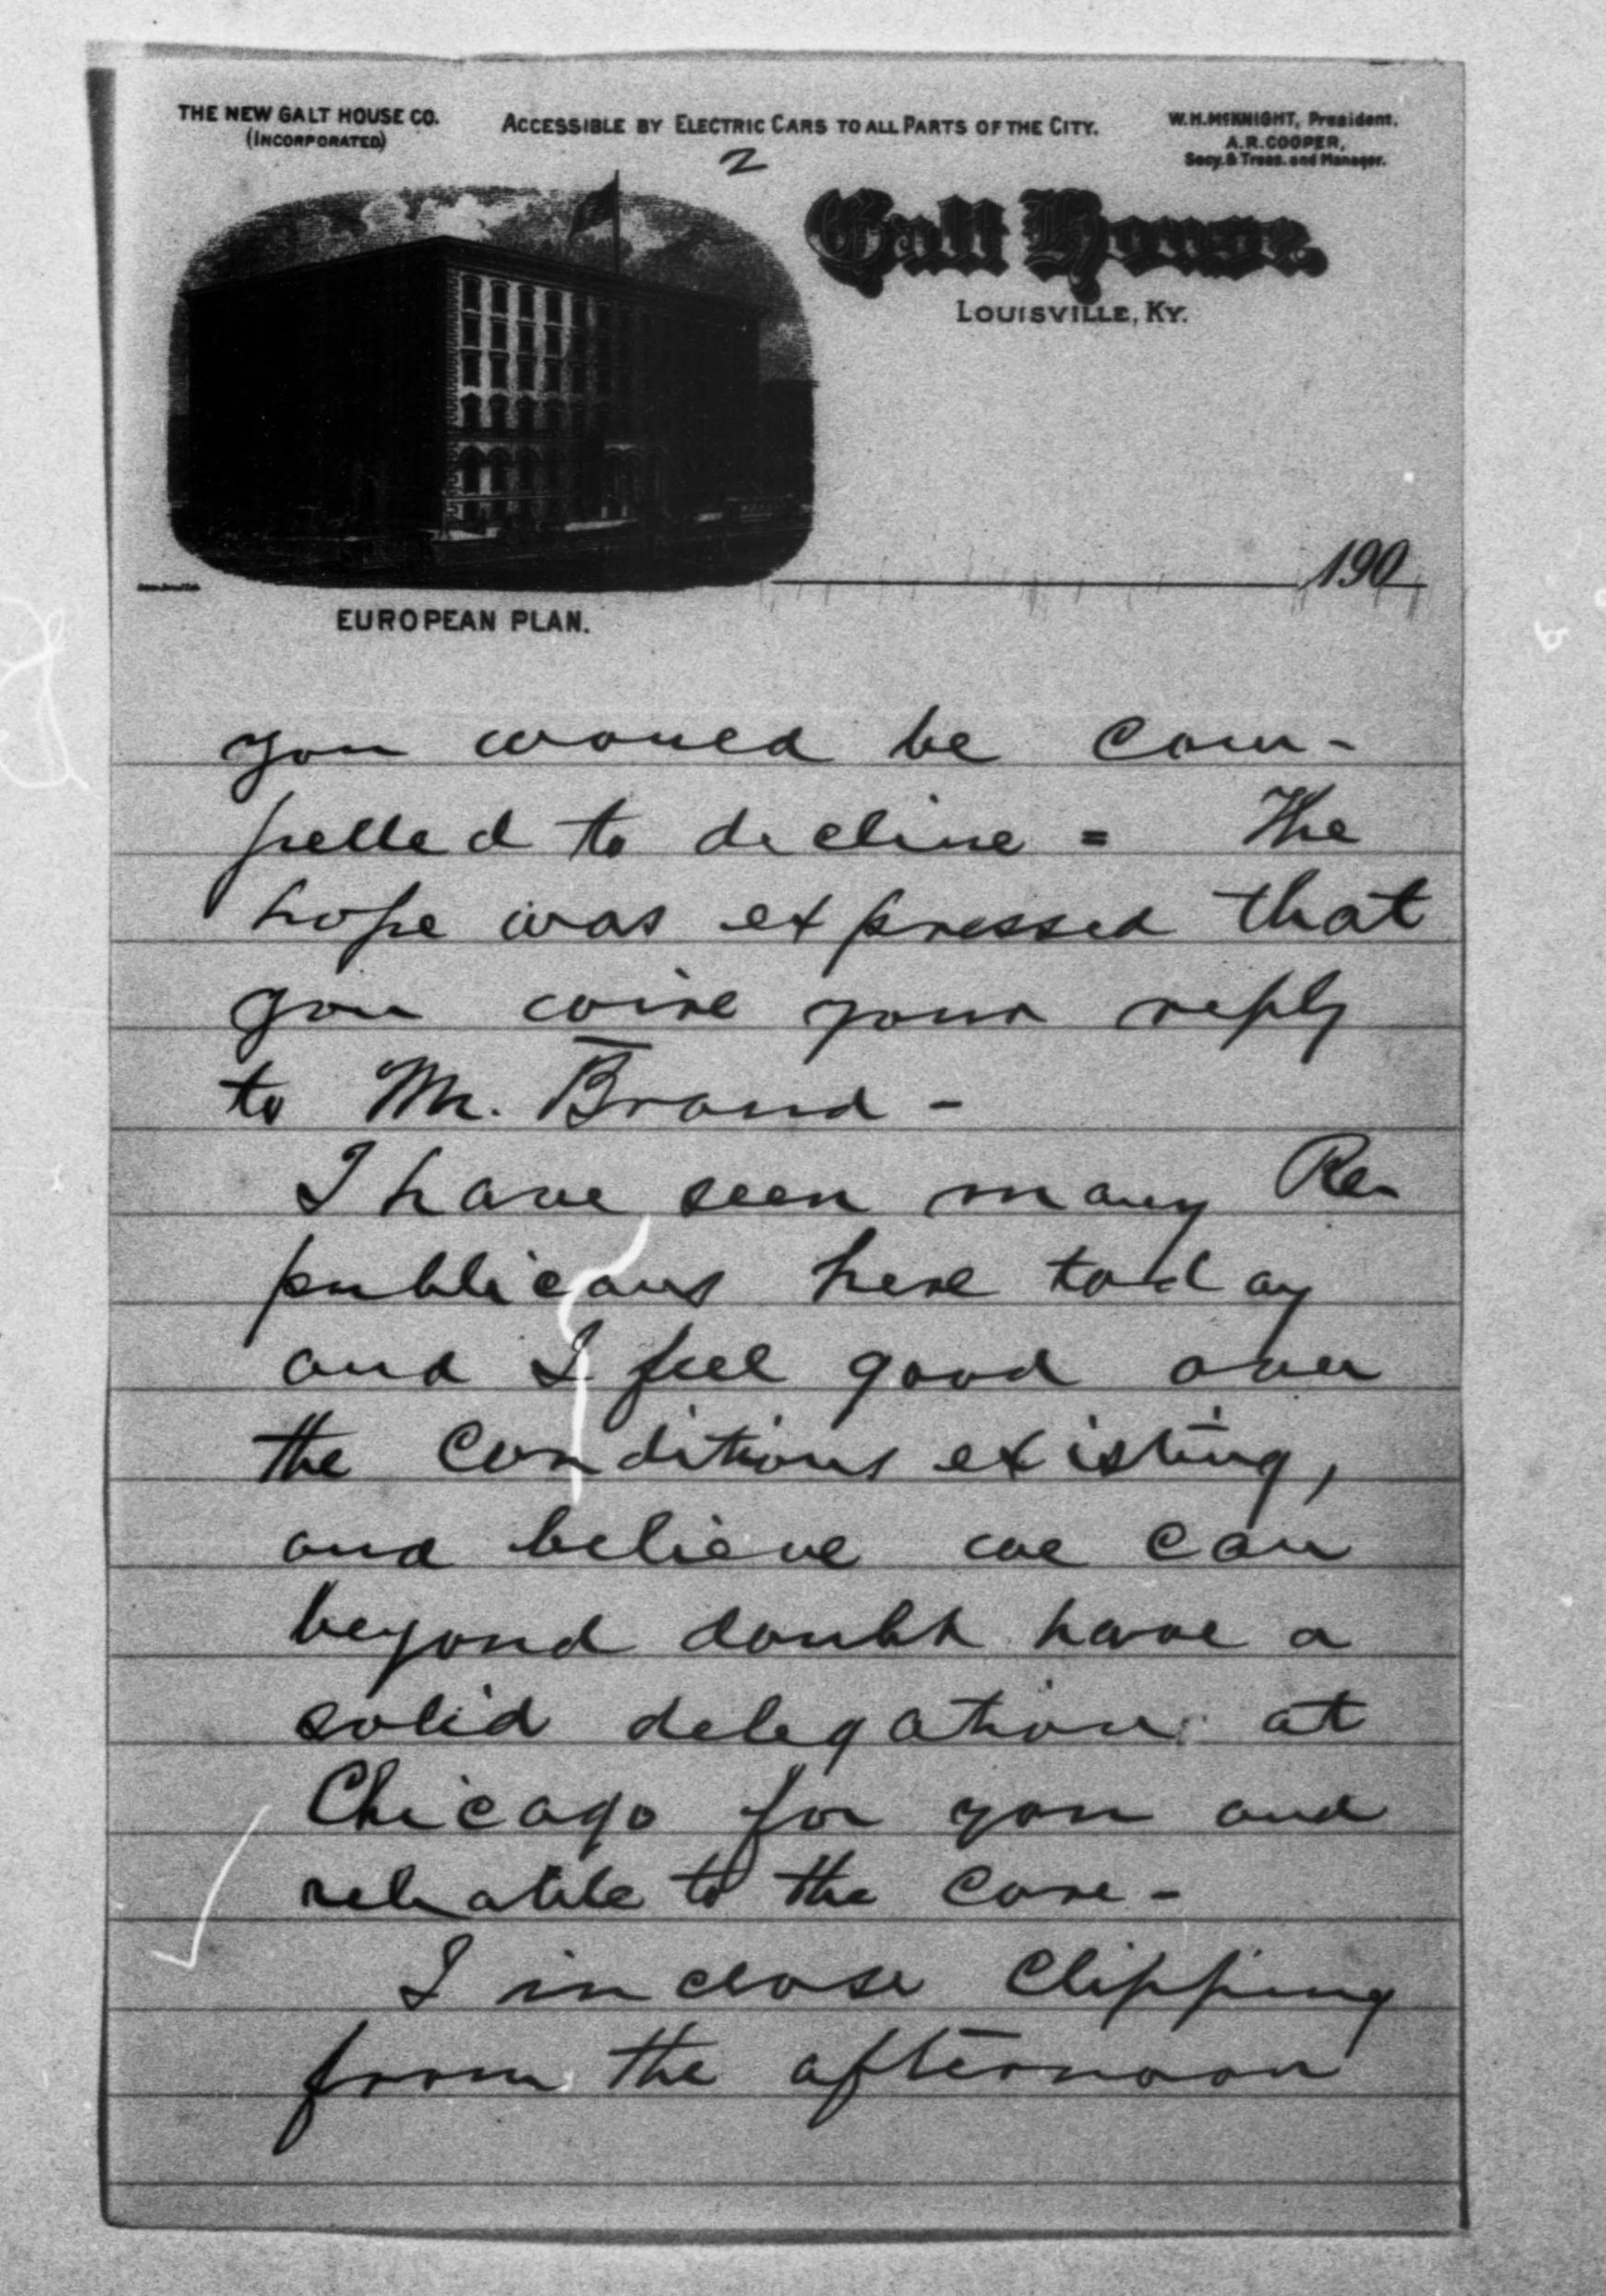 THE NEW GALT HOUSE CO.
(INCORPORATED)
ACCESSIBLE BY ELECTRIC CARS TO ALL PARTS OF THE CITY.
W.H.MCKNIGHT, President.
A.R.COOPER,
Secy.& Treas. and Manager.
2
Galt House.
LOUISVILLE, KY.
190
EUROPEAN PLAN.
you would be com-
pelled to decline = The
hope was expressed that
you wire your reply
to Mr. Brand -
I have seen many Re-
publicans here today
and I feel good over
the conditions existing,
and believe we can
beyond doubt have a
solid delegation at
Chicago for you and
reliable to the core -
I inclose clipping
from the afternoon